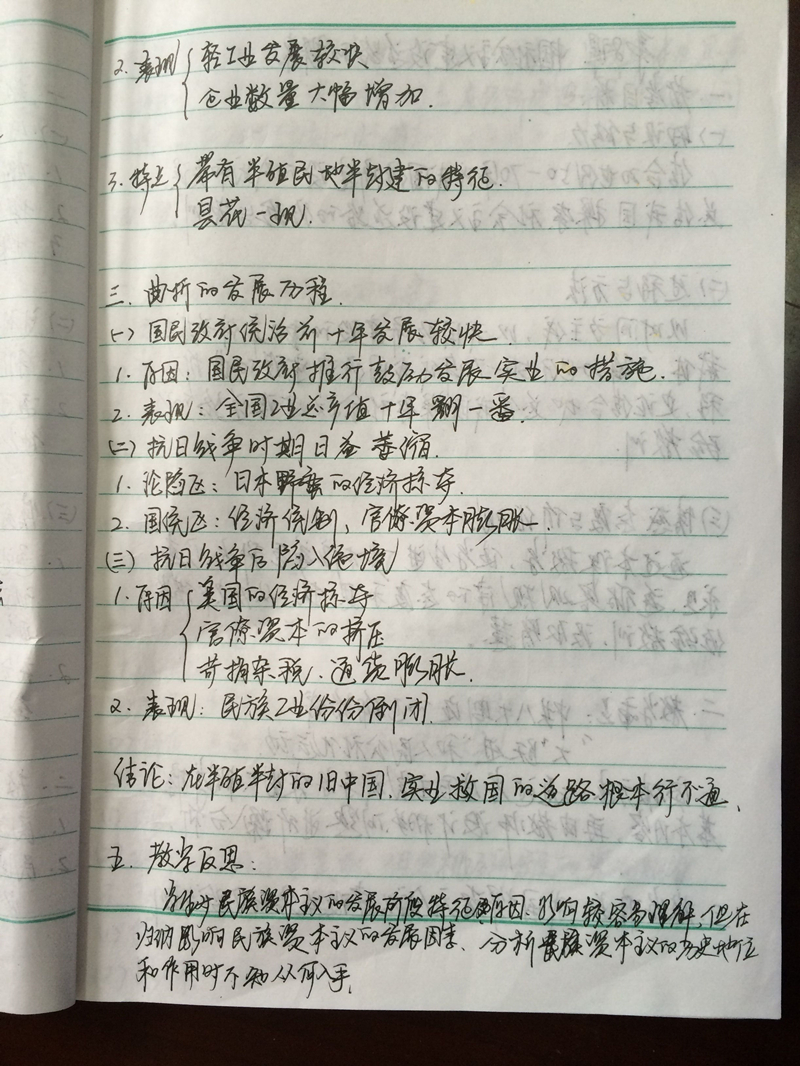 2. 表现 { 轻工业发展较快
企业数量大幅增加.
3. 特点 { 带有半殖民地半封建的特征.
昙花一现.
三. 曲折的发展历程.
(一) 国民政府统治前十年发展较快.
1. 原因: 国民政府推行鼓励发展实业的措施.
2. 表现: 全国工业总产值十年翻一番.
(二) 抗日战争时期日益萎缩.
1. 沦陷区: 日本野蛮的经济掠夺.
2. 国统区: 经济统制、官僚资本膨胀.
(三) 抗日战争后陷入绝境
1. 原因 { 美国的经济掠夺
官僚资本的挤压
苛捐杂税、通货膨胀.
2. 表现: 民族工业份份倒闭.
结论: 在半殖半封的旧中国, 实业救国的道路根本行不通.
五. 教学反思:
学生对民族资本主义的发展阶段特征原因、影响较容易理解, 但在
归纳影响民族资本主义的发展因素、分析民族资本主义的历史地位
和作用时不知从何入手.